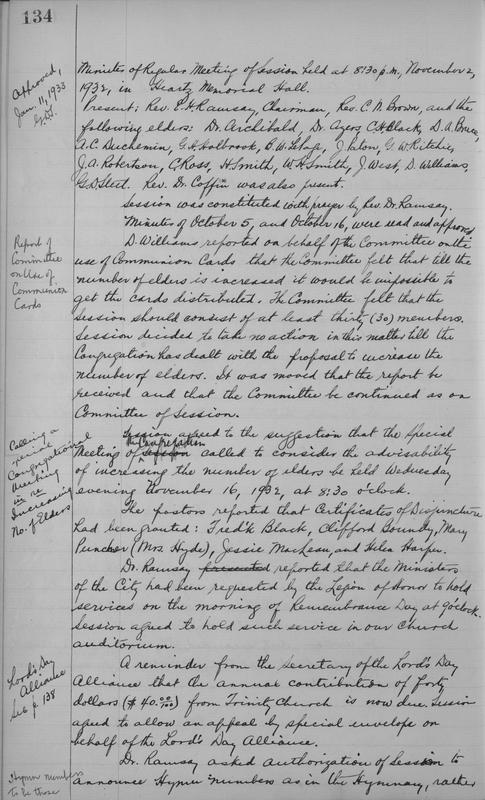 134
Approved,
Jan. 11, 1933
Minutes of Regular Meeting of Session held at 8:30 p.m., November 2,
1932, in Heartz Memorial Hall.
Present: Rev. E.H. Ramsay, Chairman, Rev. C.M. Brown, and the
following elders: Dr. Archibald, Dr. Ayers, C.H. Black, D.A. Bruce,
A.C. Duchemin, G.H. Holbrook, B.W. LePage, J. Paton, G.W. Ritchie,
J.A. Robertson, C. Ross, H. Smith, W.H. Smith, J. West, D. Williams,
G.D. Steel. Rev. Dr. Coffin was also present.
Session was constituted with prayer by Rev. Dr. Ramsay.
Minutes of October 5, and October 16, were read and approved
Report of
Committee
on Use of
Communion
Cards
D. Williams reported on behalf of the Committee on the
use of Communion Cards that the Committee felt that till the
number of elders is increased it would be impossible to
get the cards distributed. The Committee felt that the
Session should consist of at least thirty (30) members.
Session decided to take no action in this matter till the
Congregation has dealt with the proposal to increase the
number of elders. It was moved that the report be
received and that the Committee be continued as on
Committee of Session.
Calling a
special
Congregational
Meeting
in re
Increasing
No. of Elders
Session agreed to the suggestion that the Special
Meeting of Session the Congregation called to consider the advisability
of increasing the number of elders be held Wednesday
evening November 16, 1932, at 8:30 o'clock.
The pastors reported that Certificates of Disjuncture
had been granted: Fred'k Black, Clifford Bounds, Mary
Puncher (Mrs. Hyde), Jessie MacLean, and Helen Harper.
Dr. Ramsay presented reported that the Ministers
of the City had been requested by the Legion of Honor to hold
services on the morning of Remembrance Day at 9 o'clock.
Session agreed to hold such service in our Church
auditorium.
Lord's Day
Alliance
See p. 138
A reminder from the Secretary of the Lord's Day
Alliance that the annual contribution of forty
dollars ($40.00/100) from Trinity Church is now due. Session
agreed to allow an appeal by special envelope on
behalf of the Lord's Day Alliance.
Hymn numbers
to be those
Dr. Ramsay asked authorization of Session to
announce Hymn numbers as in the Hymnary, rather